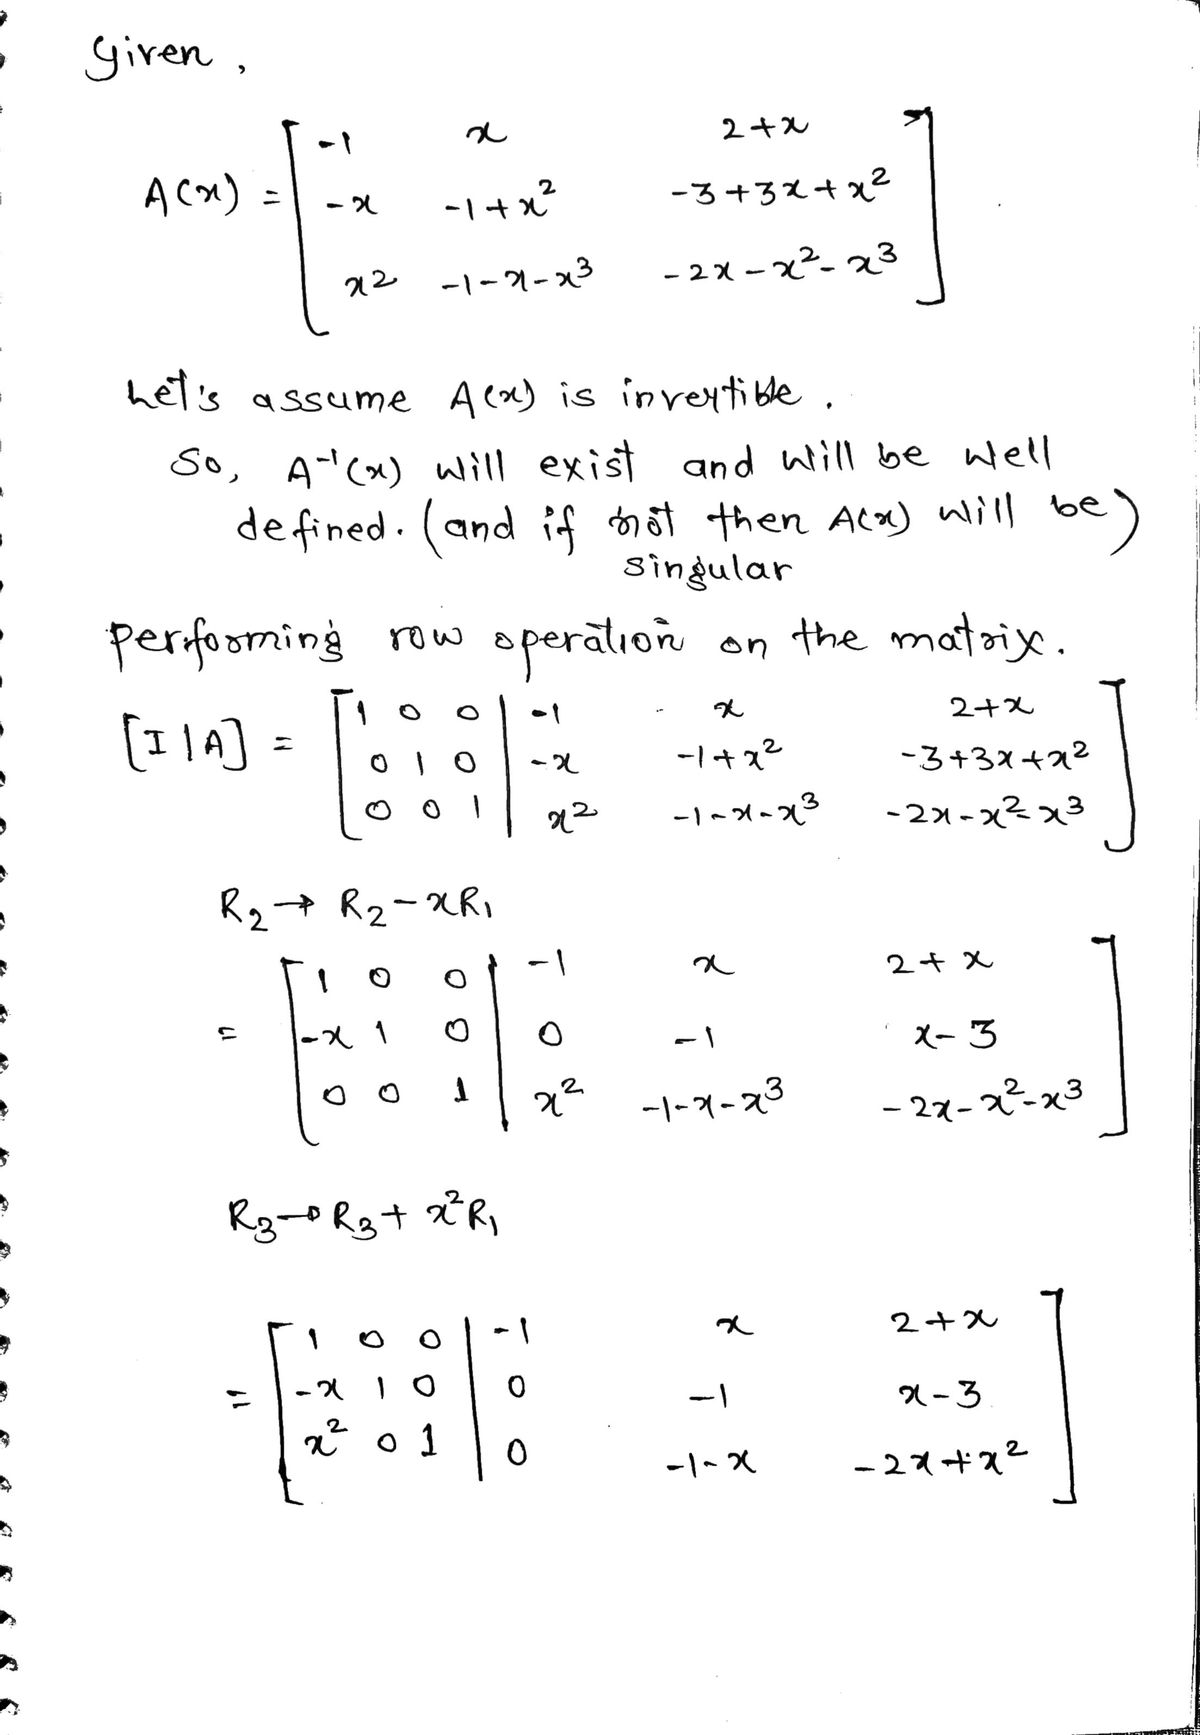 Given,
A(x) = [ -1 x 2+x
-x -1+x² -3+3x+x²
x² -1-x-x³ -2x-x²-x³ ]
Let's assume A(x) is invertible.
So, A⁻¹(x) will exist and will be well
defined. (and if not then A(x) will be)
singular
performing row operation on the matrix.
[I|A] = [ 1 0 0 | -1 x 2+x
0 1 0 | -x -1+x² -3+3x+x²
0 0 1 | x² -1-x-x³ -2x-x²-x³ ]
R₂ → R₂-xR₁
= [ 1 0 0 | -1 x 2+x
-x 1 0 | 0 -1 x-3
0 0 1 | x² -1-x-x³ -2x-x²-x³ ]
R₃→R₃+ x²R₁
= [ 1 0 0 | -1 x 2+x
-x 1 0 | 0 -1 x-3
x² 0 1 | 0 -1-x -2x+x² ]